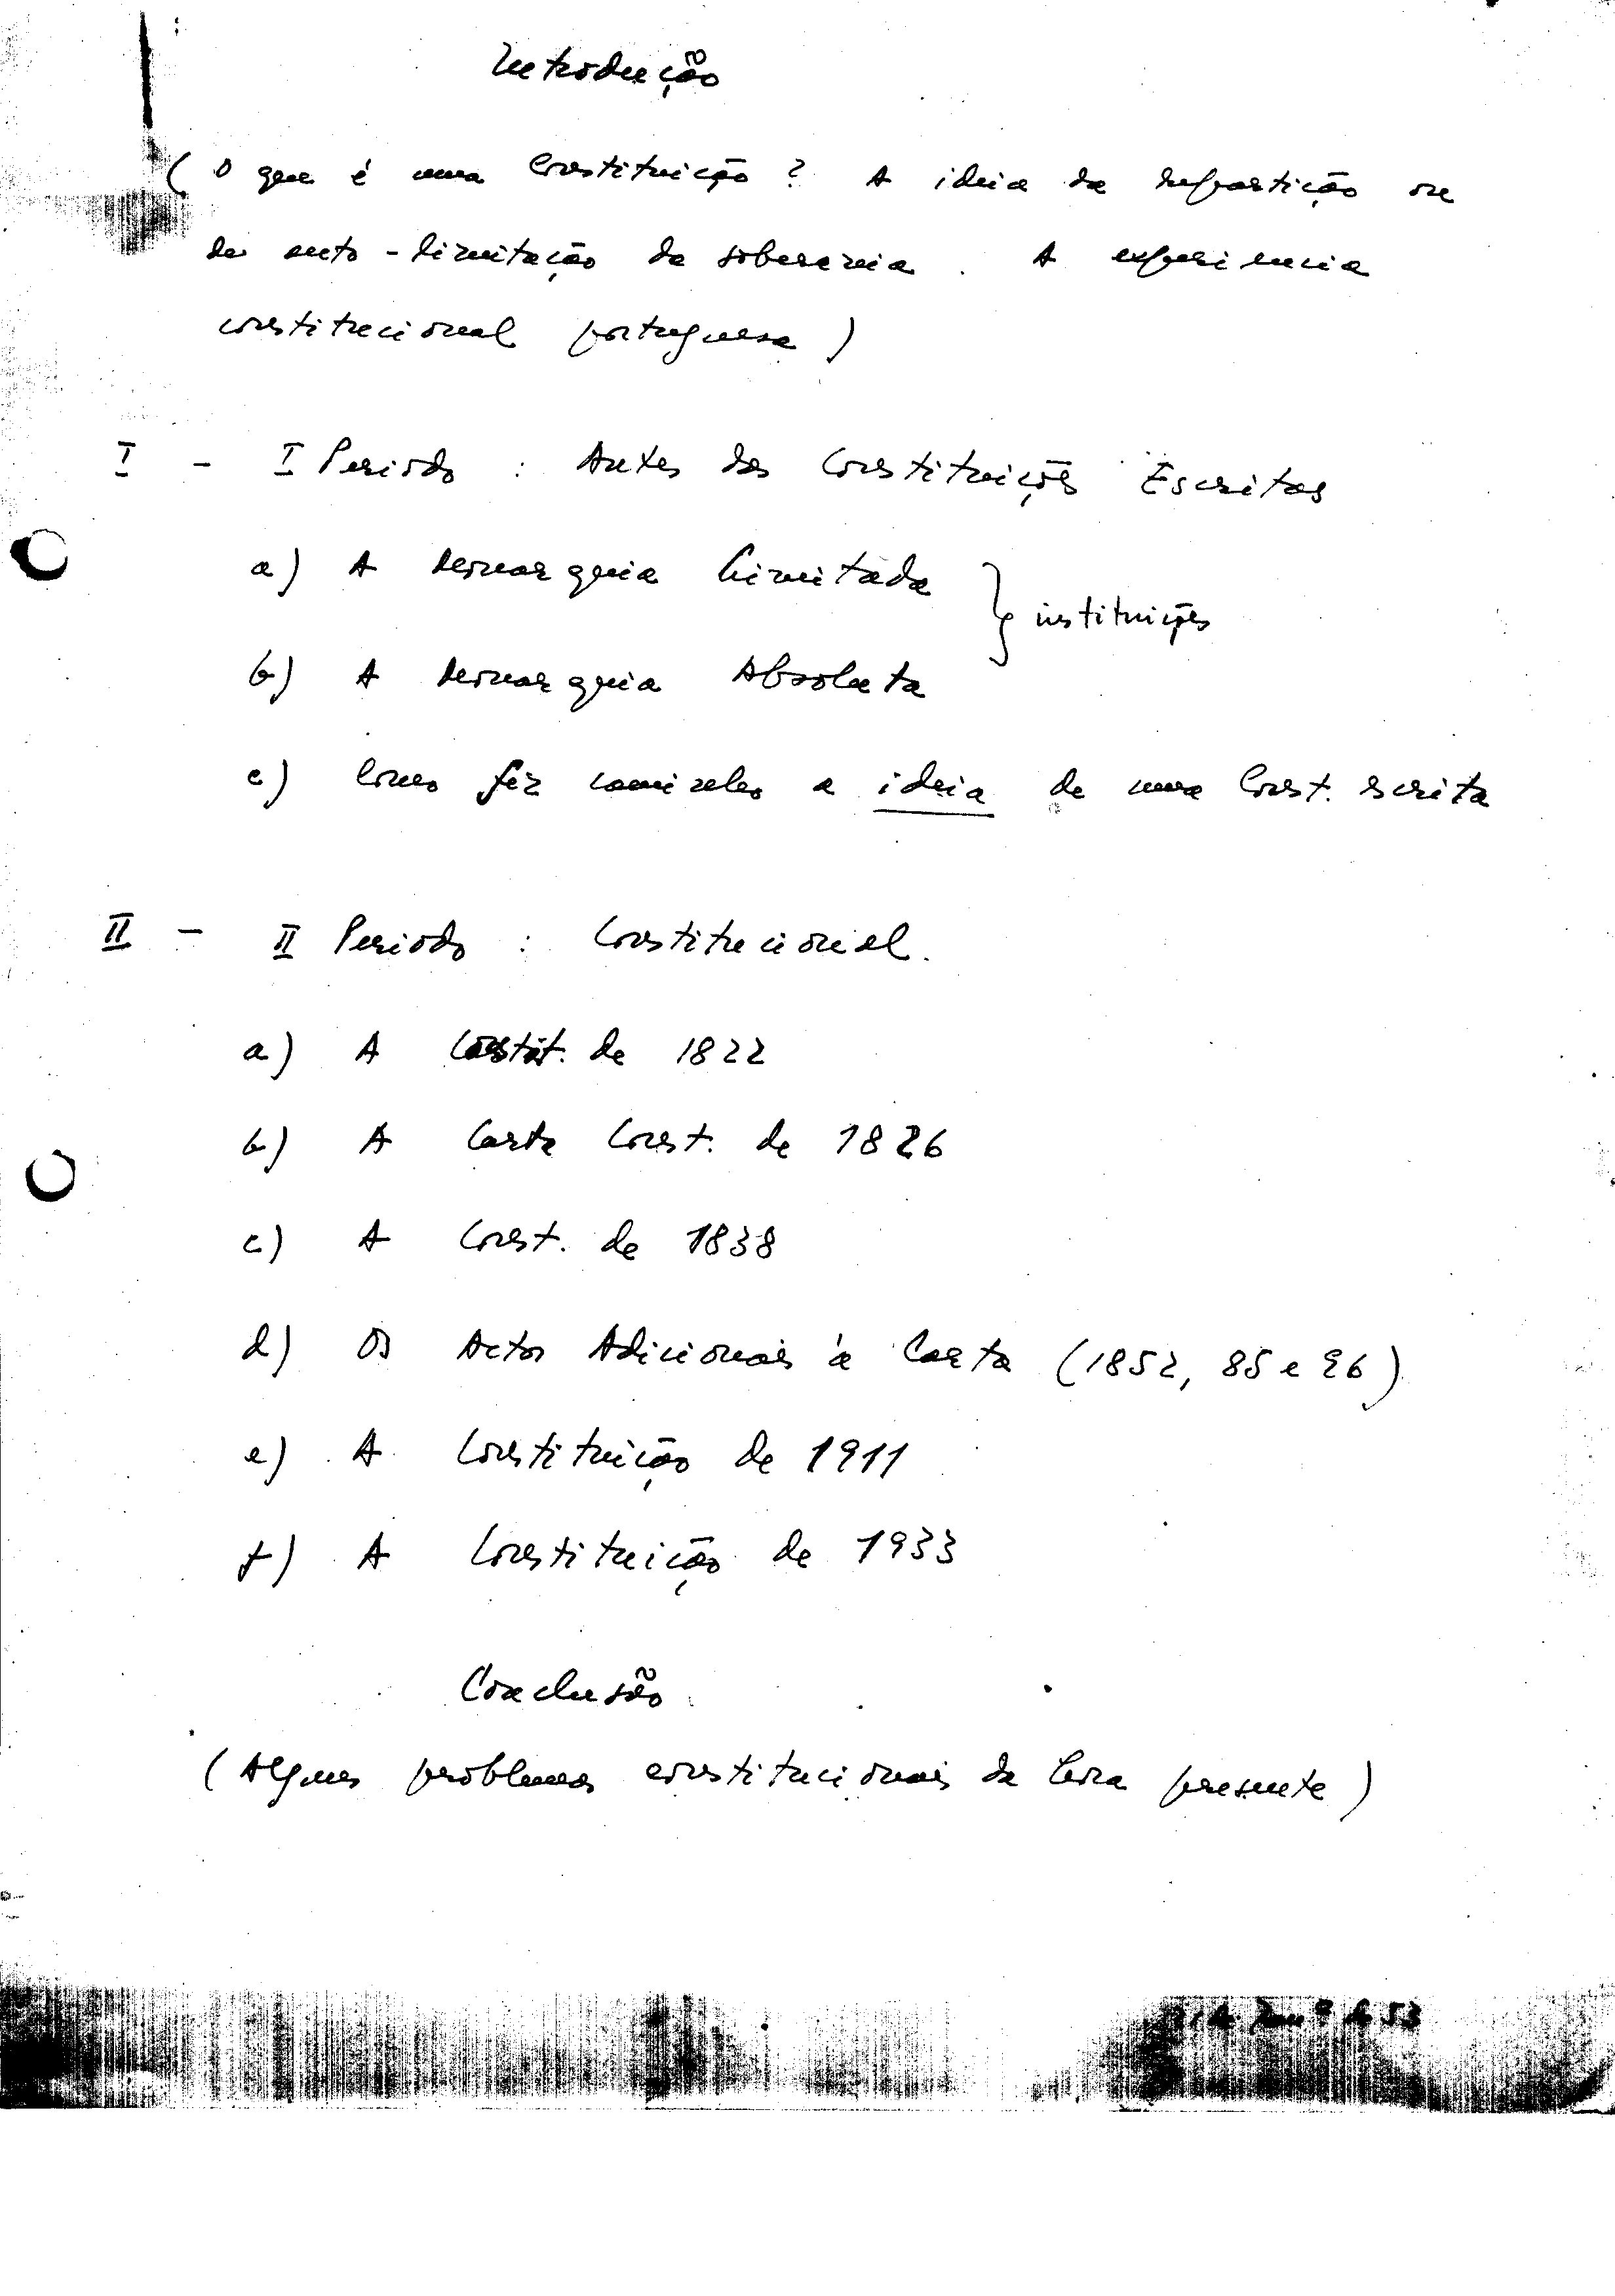 Introdução
( O que é uma Constituição ? A ideia da repartição ou
da auto-limitação da soberania . A experiencia
constitucional portuguesa )
I - I Periodo : Antes das Constituições Escritas
a) A Monarquia Limitada } instituições
b) A Monarquia Absoluta
c) Como fez caminho a ideia de uma Const. escrita
II - II Periodo : Constitucional.
a) A Constit. de 1822
b) A Carta Const. de 1826
c) A Const. de 1838
d) Os Actos Adicionais à Carta (1852, 85 e 96)
e) A Constituição de 1911
f) A Constituição de 1933
Conclusão
( Alguns problemas constitucionais da hora presente )
de 53